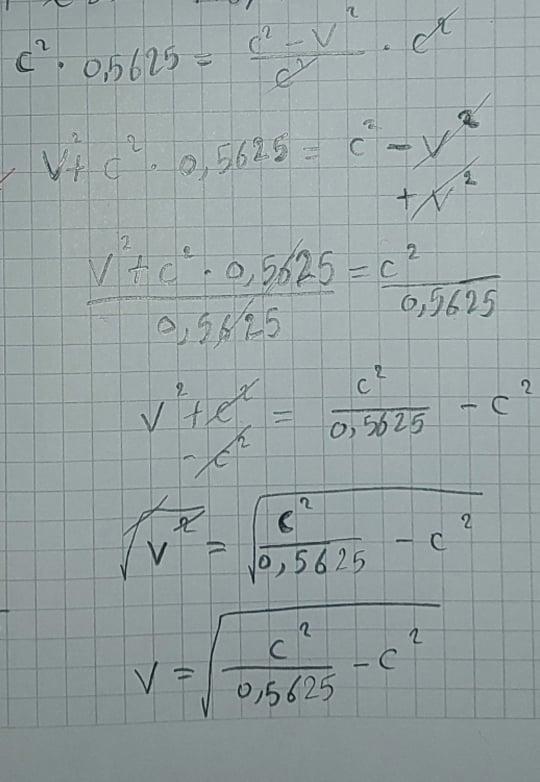 c² · 0,5625 = (c² – v²)/c² · c²
v² + c² · 0,5625 = c² – v²
+ v²
(v² + c² · 0,5625)/0,5625 = c²/0,5625
v² + c² = c²/0,5625 – c²
– c²
√v² = √(c²/0,5625 – c²)
v = √(c²/0,5625 – c²)